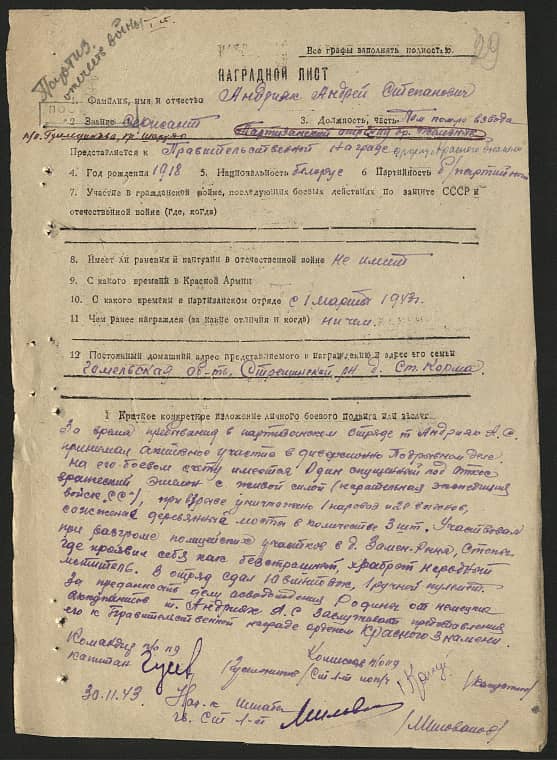 29
Все графы заполнять полностью.
НАГРАДНОЙ ЛИСТ
1. Фамилия, имя и отчество Андрияк Андрей Степанович
2 Звание Сержант 3. Должность, часть Пом
Партизанский
Представляется к Правительственной награде
4. Год рождения 1918 5. Национальность белорус 6 Партийность б/партийный
7. Участие в гражданской войне, последующих боевых действиях по защите СССР и
отечественной войне (где, когда)
8. Имеет ли ранения и контузии в отечественной войне не имеет
9. С какого времени в Красной Армии
10. С какого времени в партизанском отряде с 1 марта 1943г.
11 Чем ранее награжден (за какие отличия и когда) ничем.
12 Постоянный домашний адрес представляемого к награждению и адрес его семьи
Гомельская об-ть, Стрешинский рн д. Ст. Корма
1 Краткое конкретное изложение личного боевого подвига или заслуг
За время пребывания в партизанском отряде т Андрияк А.С.
принимал активное участие в диверсионно подрывном деле
На его боевом счету имеется один спущенный под откос
вражеский эшелон с живой силой (карательная экспедиция
войск „СС"), при взрыве уничтожено 1 паровоз и 20 вагонов,
сожжено деревянный мосты в количестве 3 шт. Участвовал
при разгроме немецких участков в д.
где проявил себя как бесстрашный, храбрый народный
мститель. В отряд сдал 10 винтовок, 1 ручной пулемет.
За преданность делу освобождения Родины от немецких
оккупантов т. Андрияк А.С заслуживает представления
его к Правительственной награде орденом Красного Знамени.
Командир п/о пд Комиссар п/о пд
капитан Ст л-т
30.11.43 Нач-к штаба
гв. Ст л-т /Милованов/